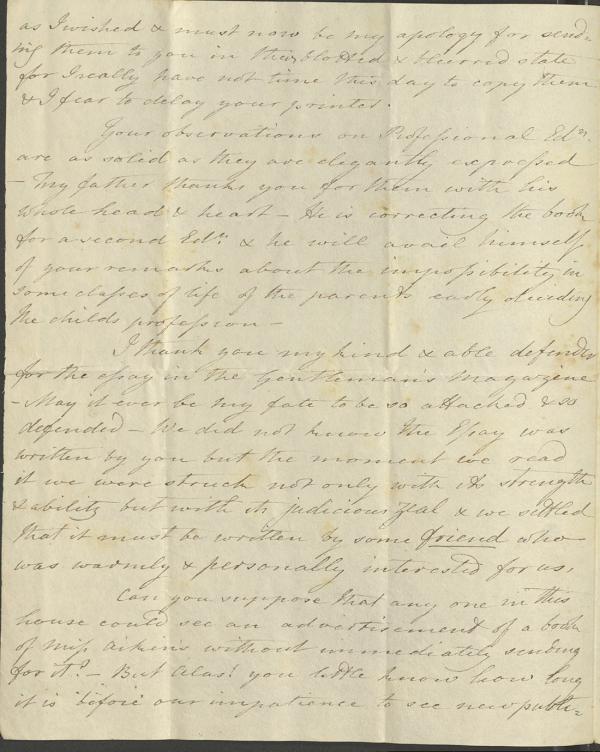 as I wished & must now be my apology for send=
ing them to you in this blotted & blurred state
for I really have not time this day to copy them
& I fear to delay your printer.
Your observations on Professional Edn.
are as solid as they are elegantly expressed
– My father thanks you for them with his
whole head & heart – He is correcting the book
for a second Edn. & he will avail himself
of your remarks about the impossibility in
some classes of life of the parents early deciding
the childs profession –
I thank you my kind & able defender
for the essay in the Gentlemans Magazine
– May it ever be my fate to be so attacked & so
defended – We did not know the Essay was
written by you but the moment we read
it we were struck not only with its strength
& ability but with its judicious zeal & we settled
that it must be written by some friend who
was warmly & personally interested for us,
Can you suppose that any one in this
house could see an advertisement of a book
of Miss Aikins without immediately sending
for it? – But Alas! you little know how long
it is before our impatience to see new publi=